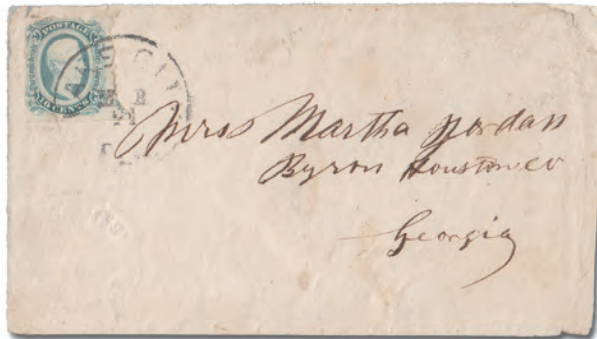 POSTAGE
10 CENTS
CITY
Mrs Martha Jordan
Byron Houston co
Georgia